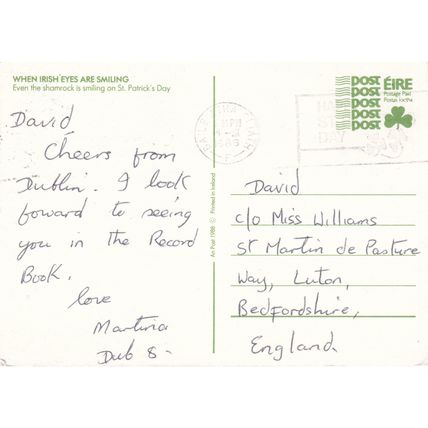 WHEN IRISH EYES ARE SMILING
Even the shamrock is smiling on St. Patrick's Day
David
Cheers from
Dublin. I look
foward to seeing
you in the Record
Book.
love
Martina
Dub 8-
An Post 1988 © Printed in Ireland
post
post
post
post
post
ÉIRE
Postage Paid
Postas Íoctha
David
c/o Miss Williams
St Martin de Pasture
Way, Luton,
Bedfordshire,
England.